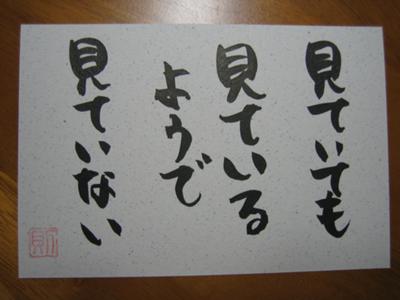 見ていても
見ている
ようで
見ていない